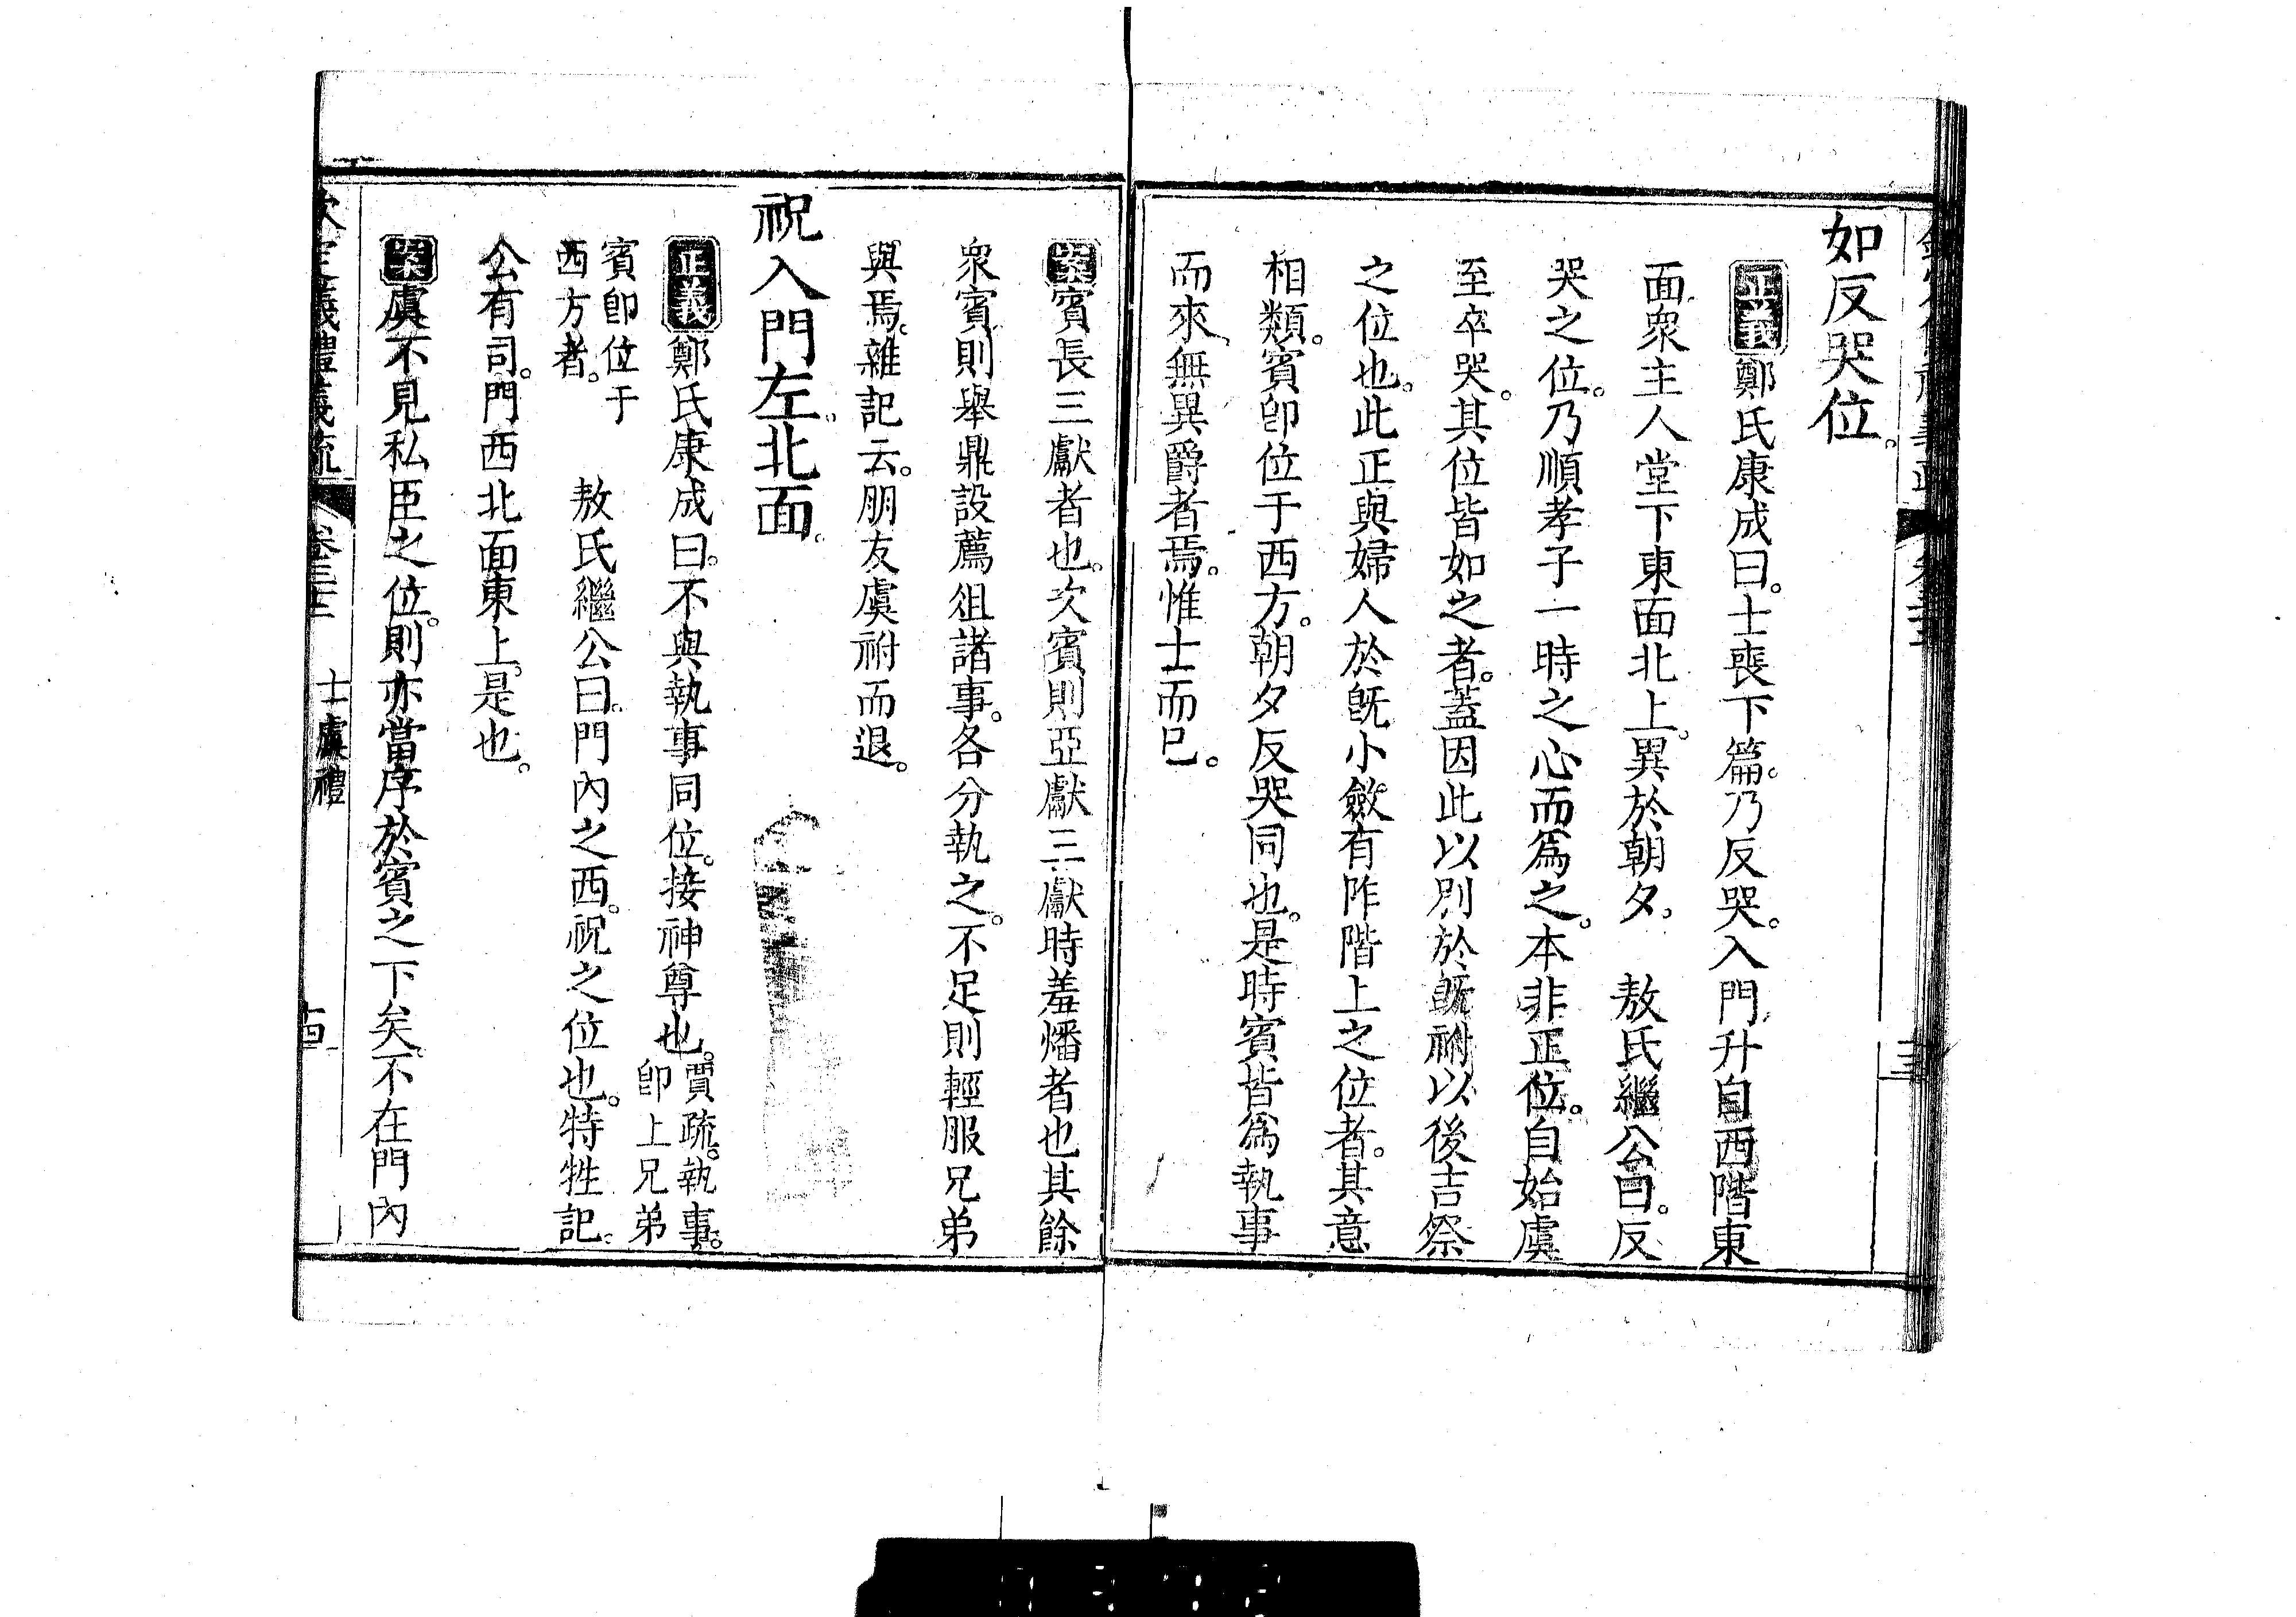 如反哭位。
正義鄭氏康成曰。士喪下篇。乃反哭。入門升自西階東
面。衆主人堂下東面北上。異於朝夕。　敖氏繼公曰。反
哭之位。乃順孝子一時之心而爲之。本非正位。自始虞
至卒哭。其位皆如之者。蓋因此以別於旣祔以後吉祭
之位也。此正與婦人於旣小斂有阼階上之位者。其意
相類。賓卽位于西方。朝夕反哭同也。是時賓皆爲執事
而來。無異爵者焉。惟士而已。
案賓長三獻者也。次賓則亞獻三獻時羞燔者也其餘
衆賓則舉鼎設薦俎諸事。各分執之。不足則輕服兄弟
與焉。雜記云。朋友虞祔而退。
祝入門左。北面。
正義鄭氏康成曰。不與執事同位。接神尊也。賈疏。執事。卽上兄弟
賓卽位于西方者。　敖氏繼公曰。門內之西。祝之位也。特牲記。
公有司。門西北面東上。是也。
案虞不見私臣之位。則亦當序於賓之下矣。不在門內
欽定儀禮義疏　卷三十三　士虞禮